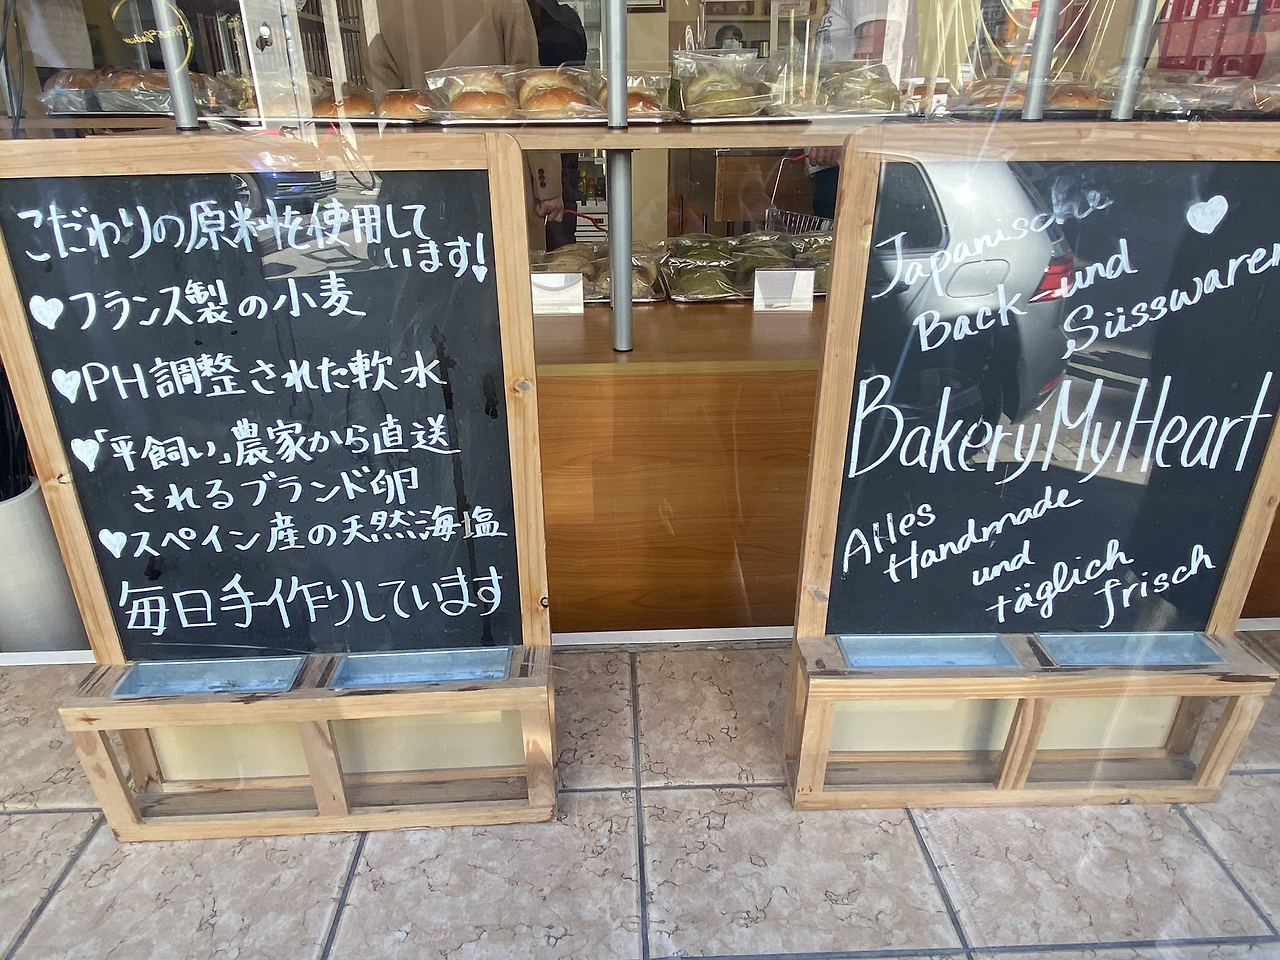 こだわりの原料を使用して
います!
フランス製の小麦
PH調整された軟水
「平飼い」農家から直送
されるブランド卵
スペイン産の天然海塩
毎日手作りしています
Japanische
Back und
Süsswaren
BakeryMyHeart
Alles
Handmade
und
täglich
frisch